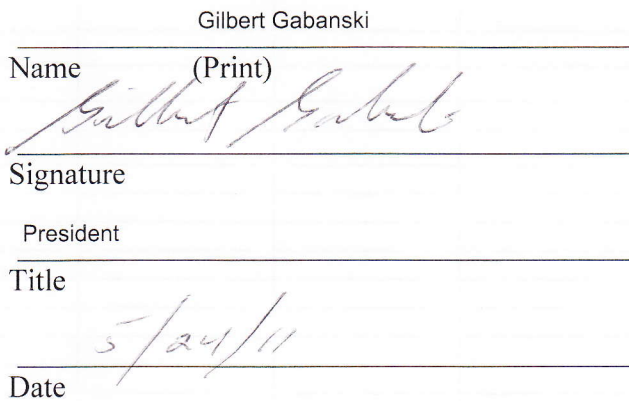 Gilbert Gabanski
Name (Print)
Gilbert
Signature
President
Title
5/24/11
Date